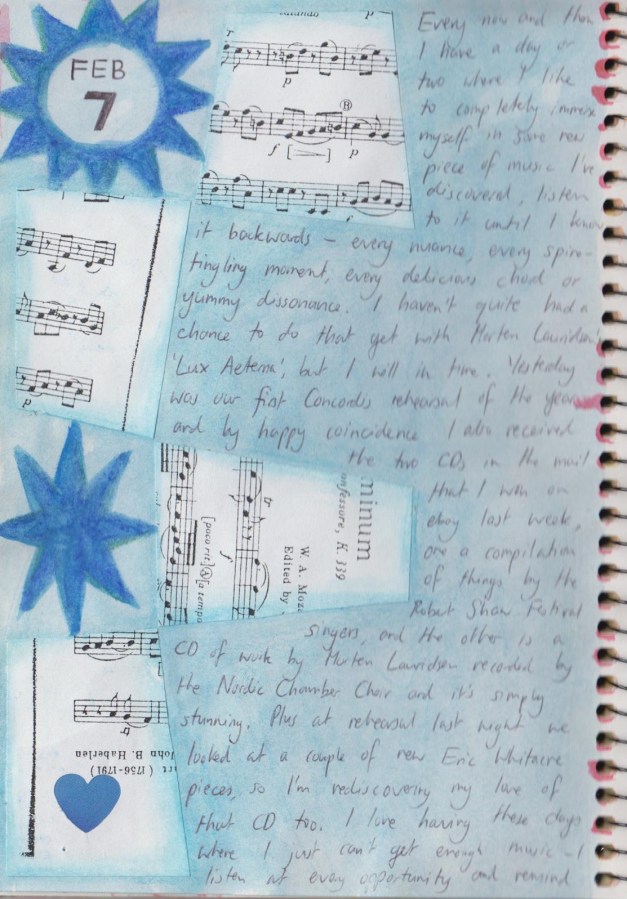 FEB
7
Every now and then
I have a day or
two where I like
to completely immerse
myself in some new
piece of music I've
discovered, listen
to it until I know
it backwards – every nuance, every spine-
tingling moment, every delicious chord or
yummy dissonance. I haven't quite had a
chance to do that yet with Morten Lauridsen's
'Lux Aeterna', but I will in time. Yesterday
was our first Concordis rehearsal of the year
and by happy coincidence I also received
the two CDs in the mail
that I won on
ebay last week,
one a compilation
of things by the
Robert Shaw Festival
Singers, and the other is a
CD of work by Morten Lauridsen recorded by
the Nordic Chamber Choir and it's simply
stunning. Plus at rehearsal last night we
looked at a couple of new Eric Whitacre
pieces, so I'm rediscovering my love of
that CD too. I love having these days
where I just can't get enough music – I
listen at every opportunity and remind
p
p
B
f
p
p
minum
onfessore, K. 339
W. A. Moza
Edited by
[poco rit.] A [a tempo
f
tr
tr
John B. Haberlen
art (1756-1791)